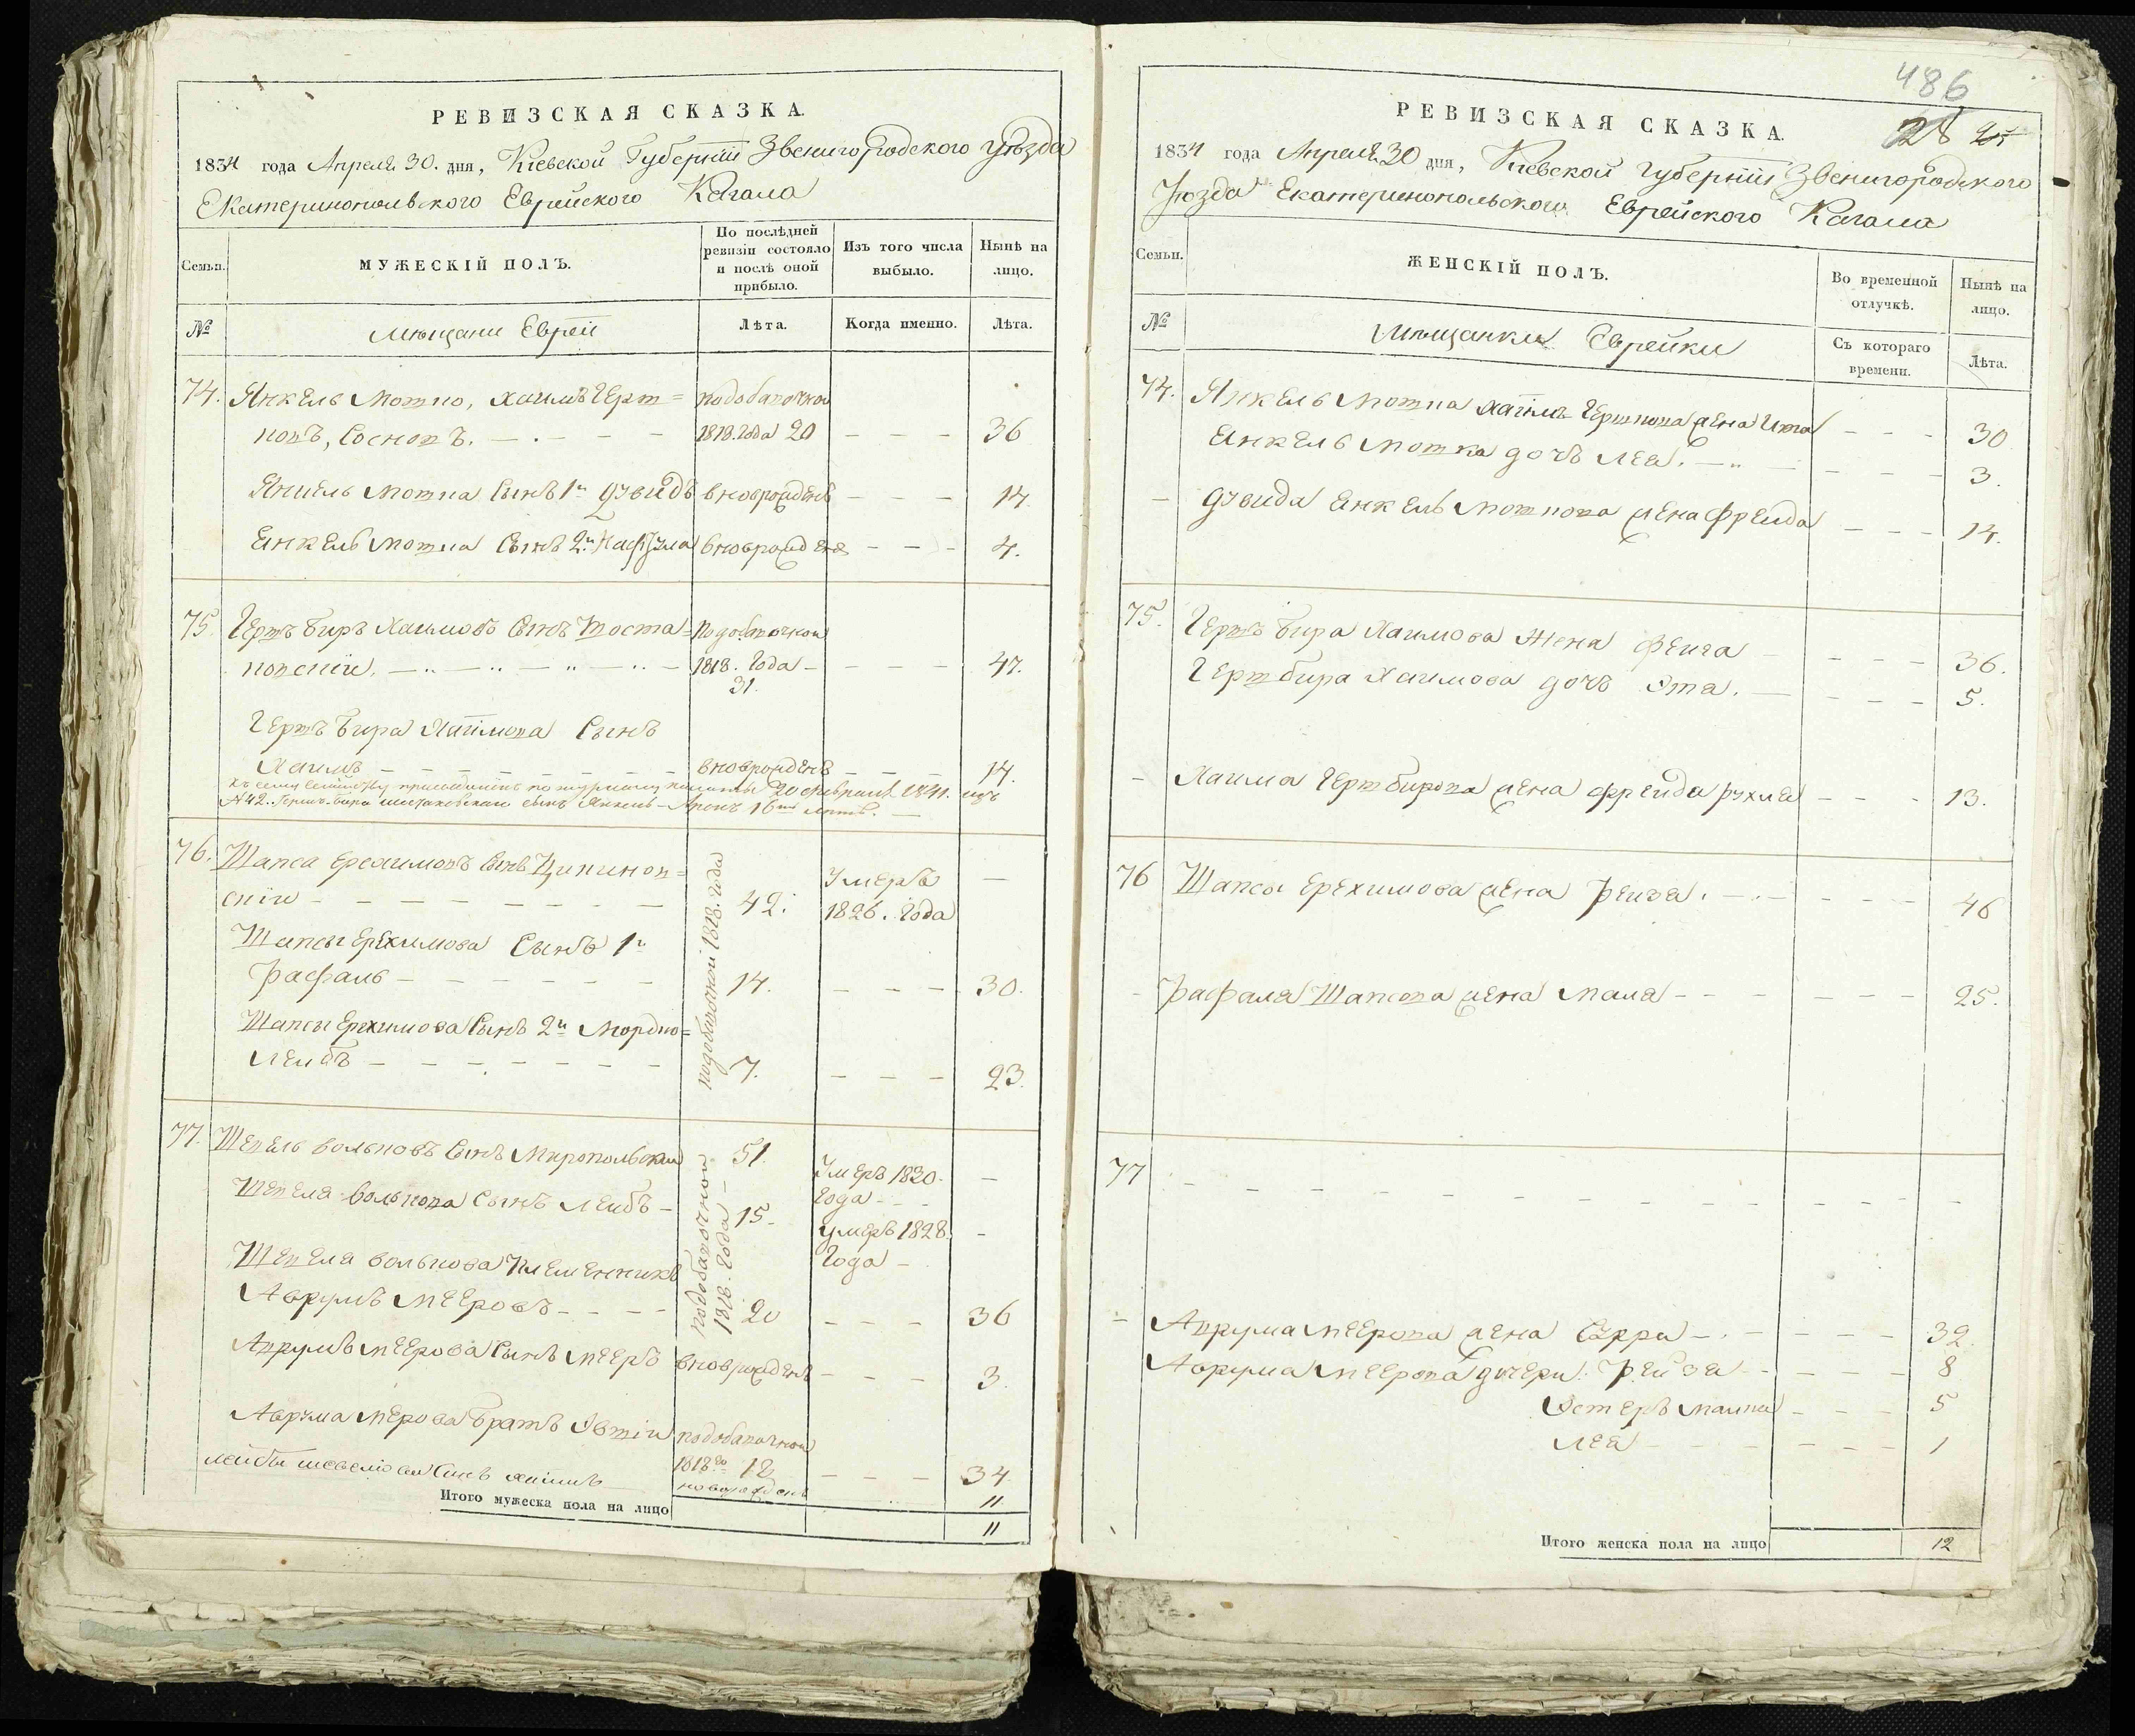 РЕВИЗСКАЯ СКАЗКА.
1834 года Апреля 30. дня, Кіевской Губерніи Звенигородского Уѣзда
Екатеринопольского Еврейского Кагала
Семьи.
МУЖЕСКІЙ ПОЛЪ.
По послѣдней ревизіи состояло и послѣ оной прибыло.
Изъ того числа выбыло.
Нынѣ на лицо.
№
Мѣщани Евреи
Лѣта.
Когда именно.
Лѣта.
74. Янкель Мотно, Хаимъ Герш= подобавочной
ковъ, Сосновъ. 1818. года 20 36
Янкель Мотка Сынъ 1й Дувидъ вноврожденъ 14.
Енкель Мотка Сынъ 2й вноврожденъ 4.
75. Гершъ Биръ Хаимовъ Сынъ Шоста= Подобавочной
ковскій. 1818. года 31. 47.
Гершъ Бира Хаимова Сынъ
Хаимъ вноврожденъ 14.
Къ сему семейству по журналу палаты 20 февраля 1841. изъ
№42. Гершъ-Бира сынъ Янкель-Аронъ 16ти лѣтъ.
76. Шапса Ерехимовъ Сынъ Ципинов=
скій 42. Умеръ 1826. года
подобавочной 1818. года
Шапсы Ерехимова Сынъ 1й
Рафаль 14. 30.
Шапсы Ерехимова Сынъ 2й Мордко=
Леибъ 7. 23.
77. Шевель Вольковъ Сынъ Миропольскій 51. Умеръ 1830. года
подобавочной 1818. года
Шевеля Волькова Сынъ Леибъ 15. умеръ 1828. года
Шевеля Волькова Племенникъ
Аврумъ Мееровъ 20 36
Аврумъ Меерова Сынъ Мееръ вновсрожденъ 3.
Аврума Мерова Братъ Овшій подобавочной
1818го 18 34.
Лейбы Шевелiова Сынъ Хаимъ новорожденъ 11
Итого мужеска пола на лицо 11
486
28
РЕВИЗСКАЯ СКАЗКА.
1834 года Апреля 30 дня, Кіевской Губерніи Звенигородского
Уѣзда Екатеринопольского Еврейского Кагала
Семьи.
ЖЕНСКІЙ ПОЛЪ.
Во временной отлучкѣ.
Нынѣ на лицо.
№
Мѣщанки Еврейки
Съ котораго времени.
Лѣта.
74. Янкель Мотка Хаимъ Гершкова жена Ита 30
Енкель Мотка дочь Леа. 3.
Дувида Енкель Моткова жена Фреида 14.
75. Гершъ Бира Хаимова Жена Феига 36.
Гершбира Хаимова дочь Эта. 5.
Хаима Гершбирова жена Фреида Рухля 13.
76 Шапсы Ерехимова жена Реиза. 46
Рафаля Шапсова жена Маля 25.
77
Аврума Меерова жена Сурра 32.
Аврума Меерова дочери: Рейза 8
Эстеръ Малка 5
Леа 1
Итого женска пола на лицо 12